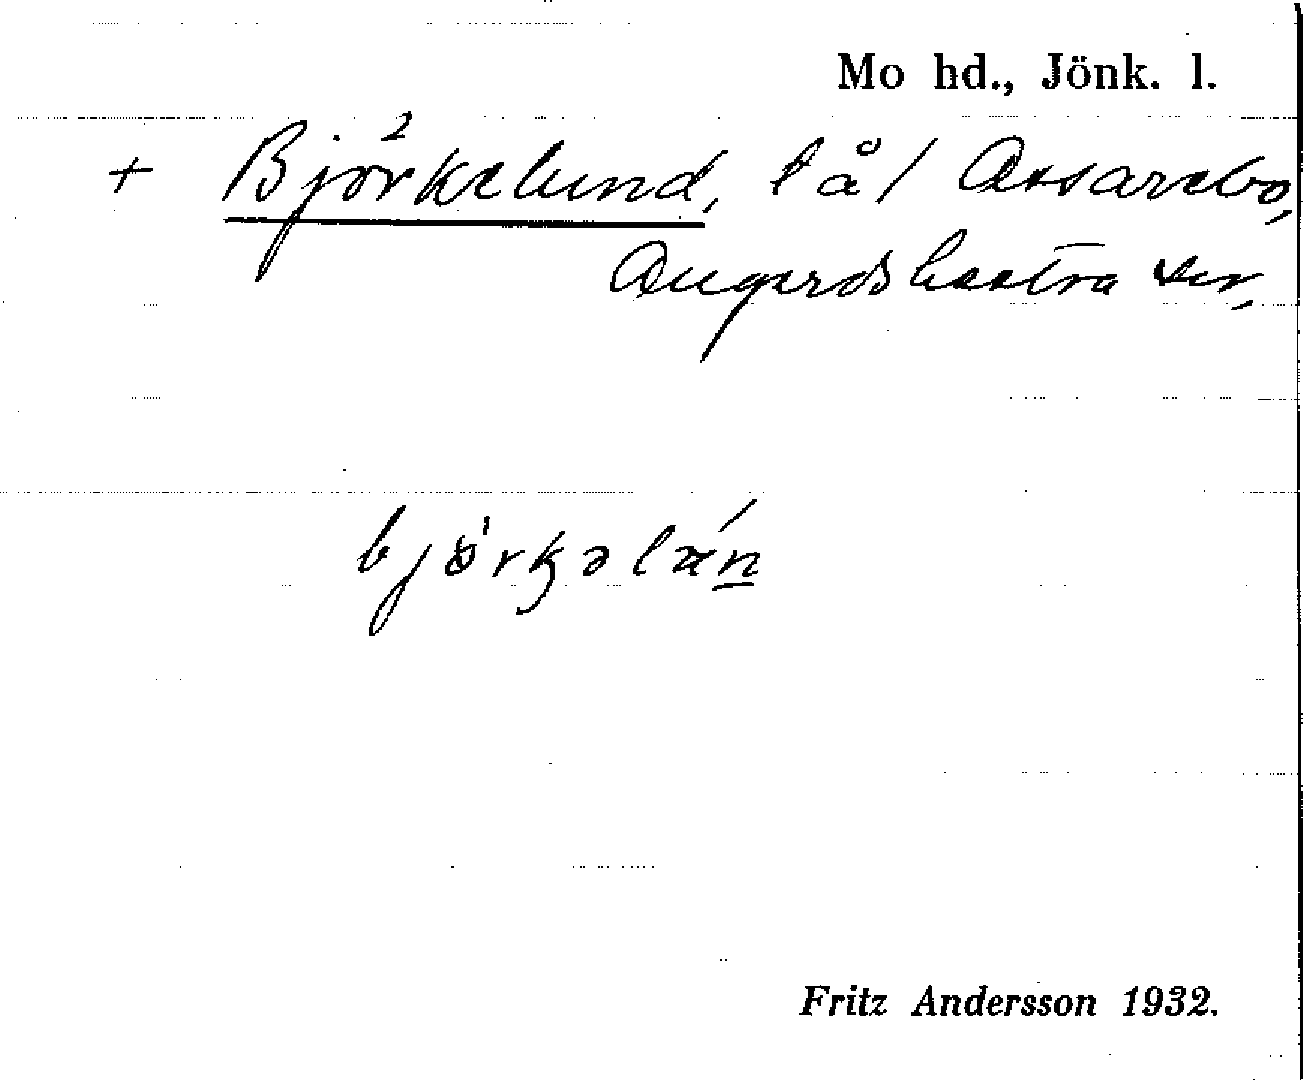 Mo hd., Jönk. l.
+ Björkelund, l å / Assarebo,
Angerdshestra sn,
björkəlun
Fritz Andersson 1932.